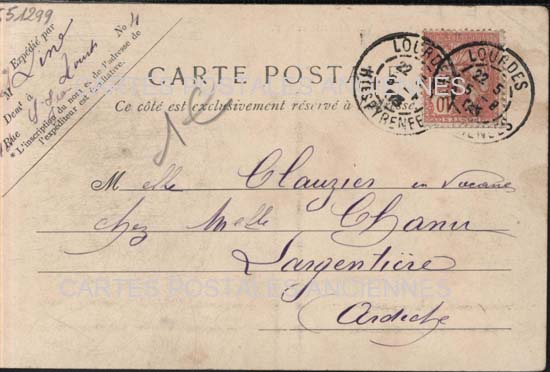 51299
No 4
Expédié par
M Line
Demt à Lourdes
Rue
*L'inscription du nom et de l'adresse de
l'expéditeur est facultative.
CARTE POSTALE
Ce côté est exclusivement réservé à l'adresse
LOURDES
22
5
HTES PYRENEES
LOURDES
22
5
10
1 €
CARTES POSTALES ANCIENNES
Melle Clauzier en vacances
chez Melle Chanu
Largentière
Ardèche
CARTES POSTALES ANCIENNES